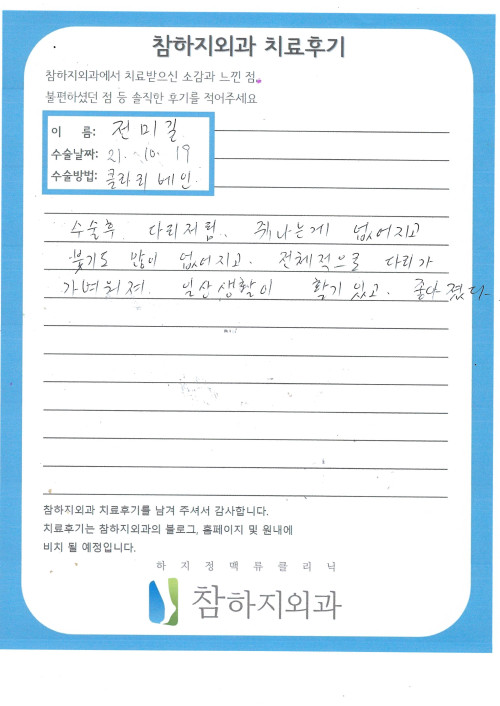 참하지외과 치료후기
참하지외과에서 치료받으신 소감과 느낀 점,
불편하셨던 점 등 솔직한 후기를 적어주세요
이 름: 전미길
수술날짜: 21. 10. 19
수술방법: 클라리베인.
수술후 다리저림.. 쥐나는게 없어지고
붓기도 많이 없어지고. 전체적으로 다리가
가벼워져. 일상생활이 활기 있고. 좋아졌다.
참하지외과 치료후기를 남겨 주셔서 감사합니다.
치료후기는 참하지외과의 블로그, 홈페이지 및 원내에
비치 될 예정입니다.
하지정맥류클리닉
참하지외과